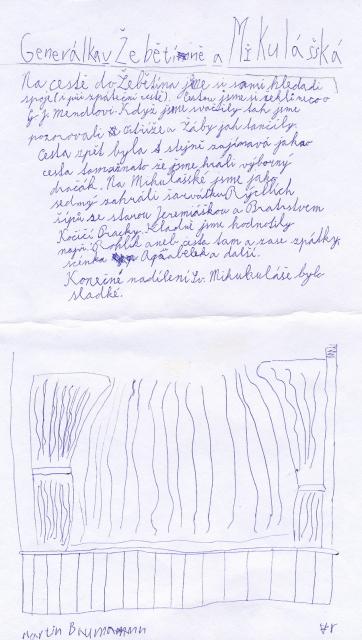 Generálka v Žebětíně a Mikulášská
Na cestě do Žebětína jsme si sami hledali
spoje (i při zpáteční cestě). Cestou jsme si řekli něco o
G. J. Mendlovi. Když jsme svačili tak jsme
pozorovali a žáby jak tančily.
Cesta zpět byla stejně zajímavá jako
cesta tam jsme hráli výborný
dračák. Na Mikulášské jsme jako
sedmý zahráli Rychlích
šípů se starou Jeremiáškou a Bratrstvem
Kočičí Pracky. Kladně jsme hodnotily
např. Rohlík aneb cesta tam a zase zpátky,
scénka a další.
Konečné nadílení Sv. Mikukuláše bylo
sladké.
Martin Baumann